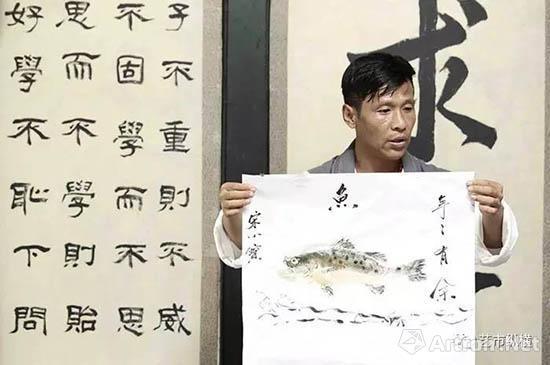 子不重則不威
不固學而不思
思而不學則貽
好學不恥下問
求
魚
年々有余
宋小寶
艺市纵横
Artron.Net